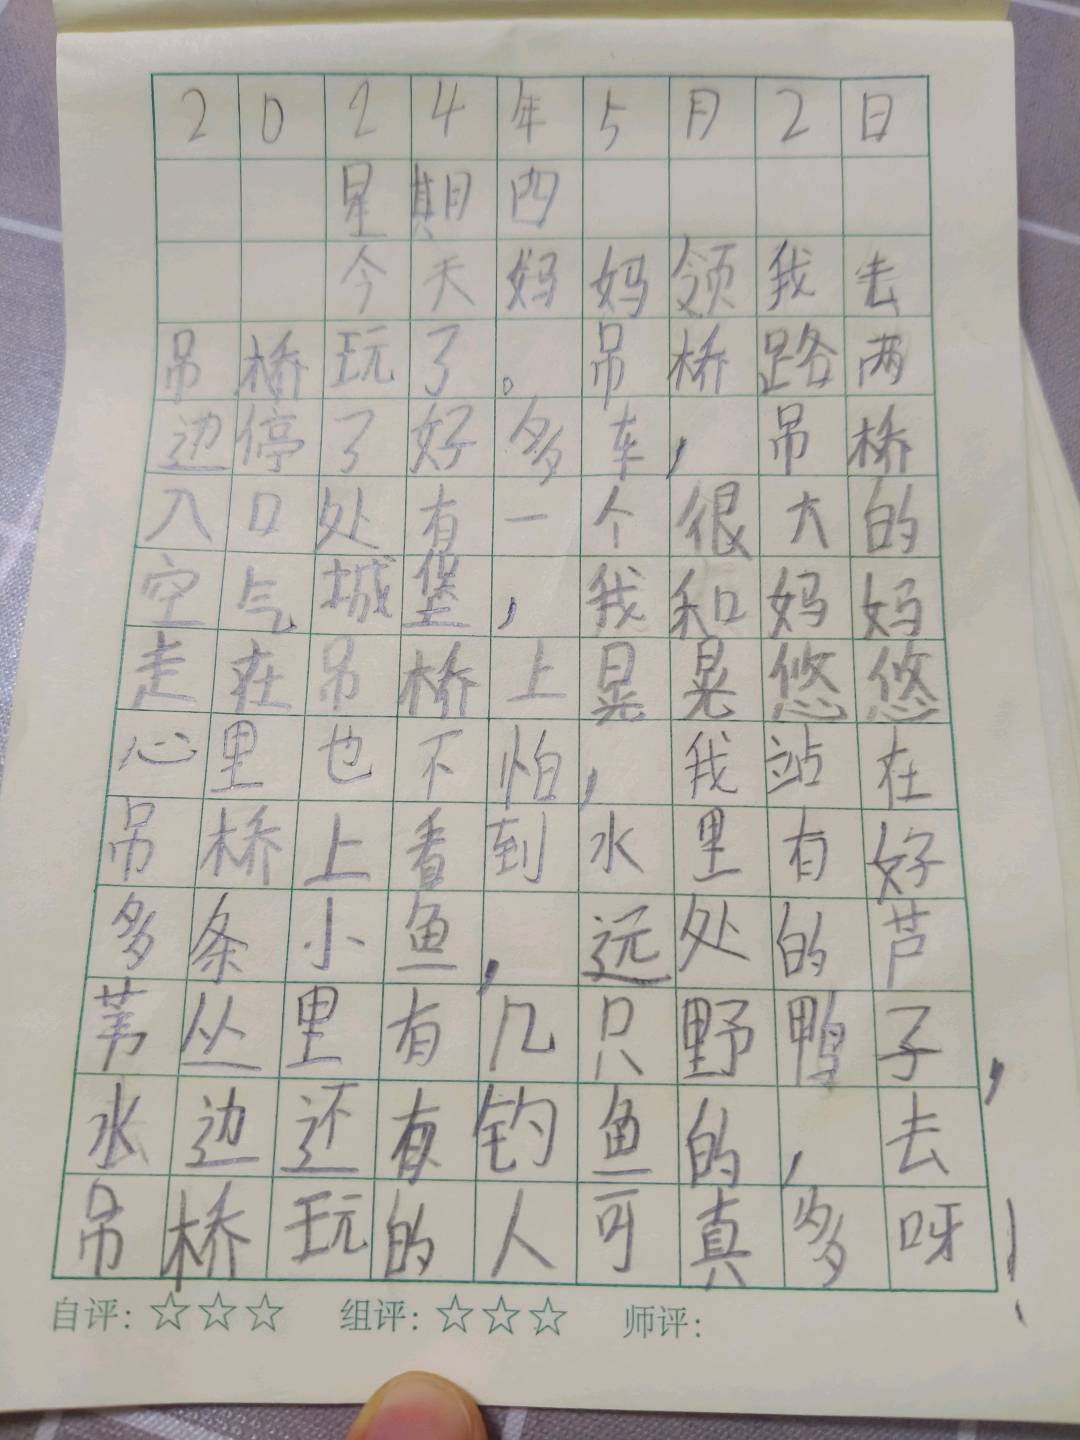 2024年5月2日
星期四
今天妈妈领我去
吊桥玩了。吊桥路两
边停了好多车，吊桥
入口处有一个很大的
空气城堡，我和妈妈
走在吊桥上晃晃悠悠
心里也不怕，我站在
吊桥上看到水里有好
多条小鱼，远处的芦
苇丛里有几只野鸭子，
水边还有钓鱼的，去
吊桥玩的人可真多呀！
自评：☆☆☆ 组评：☆☆☆ 师评：